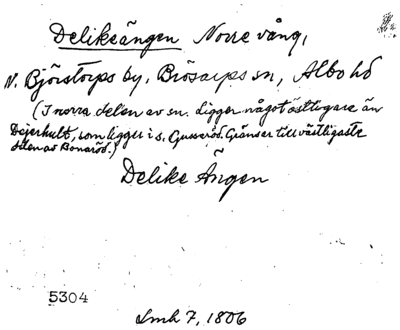 Delikeängen Norre vång,
N. Björstorps by, Brösarps sn, Albo hd
(I norra delen av sn. Ligger något östligare än
Dejerhult, som ligger i s. Gusseröd. Gränser till västligaste
delen av Bonaröd.)
Delike Ängen
5304
Lmh 7, 1806